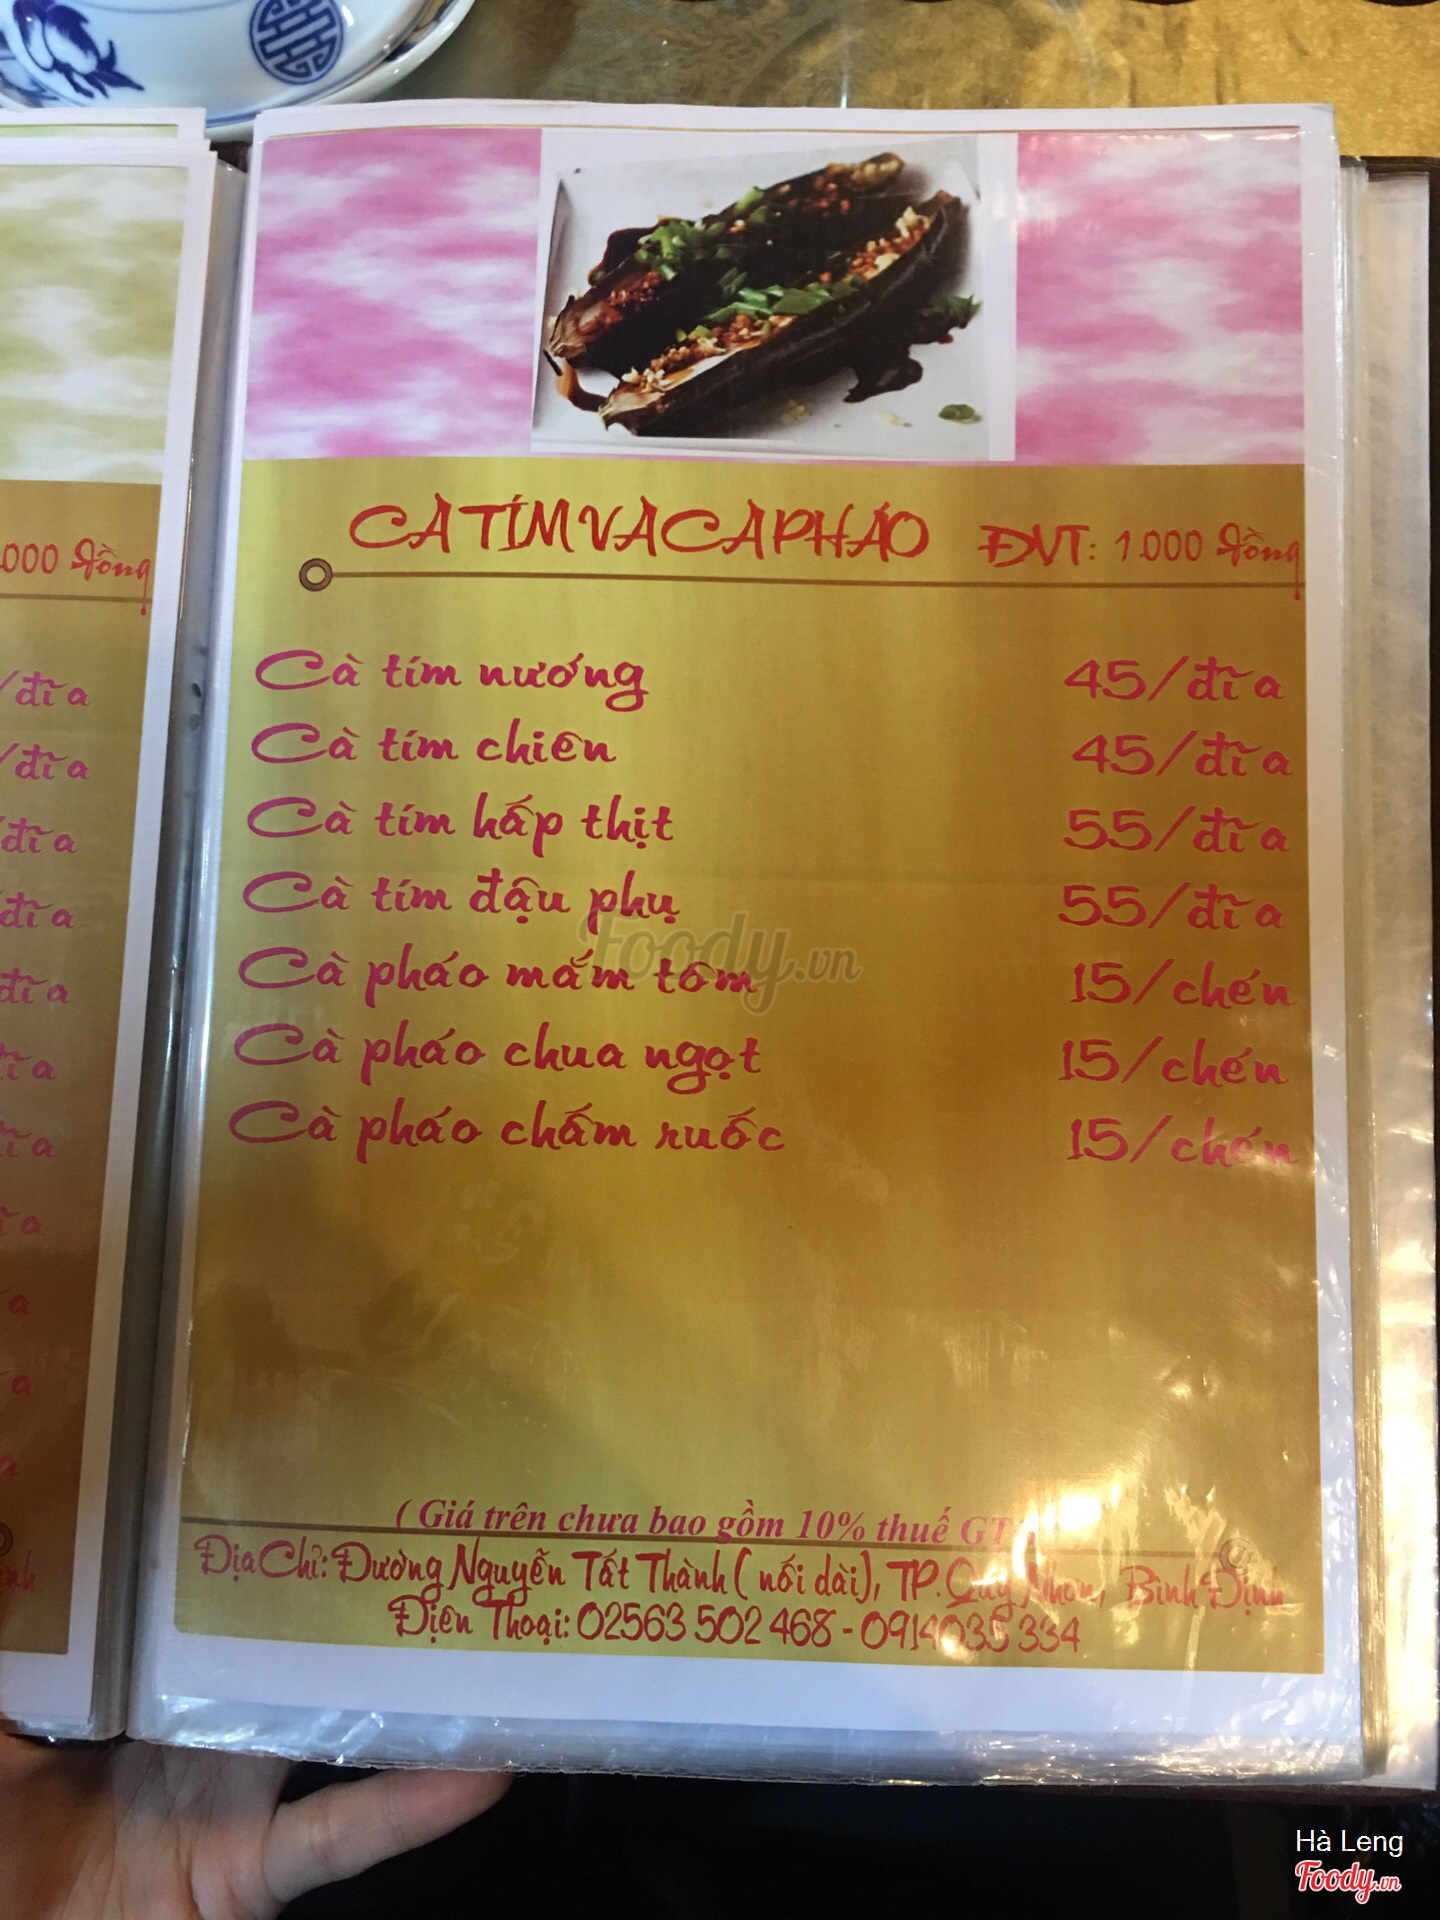 CÀ TÍM VÀ CÀ PHÁO ĐVT: 1.000 đồng
Cà tím nướng 45/đĩa
Cà tím chiên 45/đĩa
Cà tím hấp thịt 55/đĩa
Cà tím đậu phụ 55/đĩa
Cà pháo mắm tôm 15/chén
Cà pháo chua ngọt 15/chén
Cà pháo chấm ruốc 15/chén
( Giá trên chưa bao gồm 10% thuế GT
Địa Chỉ: Đường Nguyễn Tất Thành ( nối dài), TP. Quy Nhơn, Bình Định
Điện Thoại: 02563 502 468 - 0914035 334
.000 đồng
/đĩa
/đĩa
/đĩa
đĩa
đĩa
Foody.vn
Hà Leng
Foody.vn